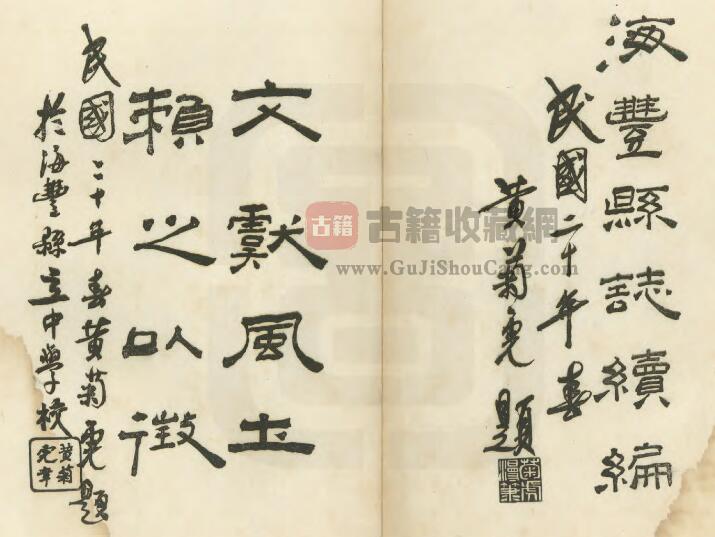 海豐縣誌續編
民國二十年春
黄菊霓題
文獻風土
賴之以徵
民國二十年春黄菊霓題
於海豐縣立中學校
古籍
古籍收藏網
www.GuJiShouCang.com